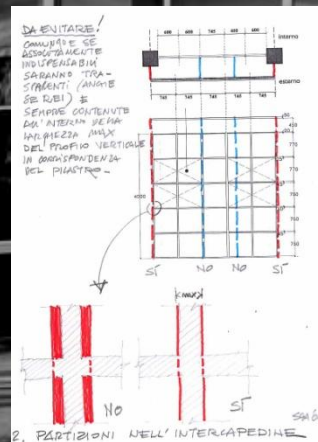 DA EVITARE!
COMUNQUE SE
ASSOLUTAMENTE
INDISPENSABILI
SARANNO TRA-
SPARENTI (ANCHE
SE REI) E
SEMPRE CONTENUTE
ALL'INTERNO DELLA
LARGHEZZA MAX
DEL PROFILO VERTICALE
IN CORRISPONDENZA
DEL PILASTRO.
interno
esterno
745 745 745 745
SÌ NO NO SÌ
NO
SÌ
2. PARTIZIONI NELL'INTERCAPEDINE